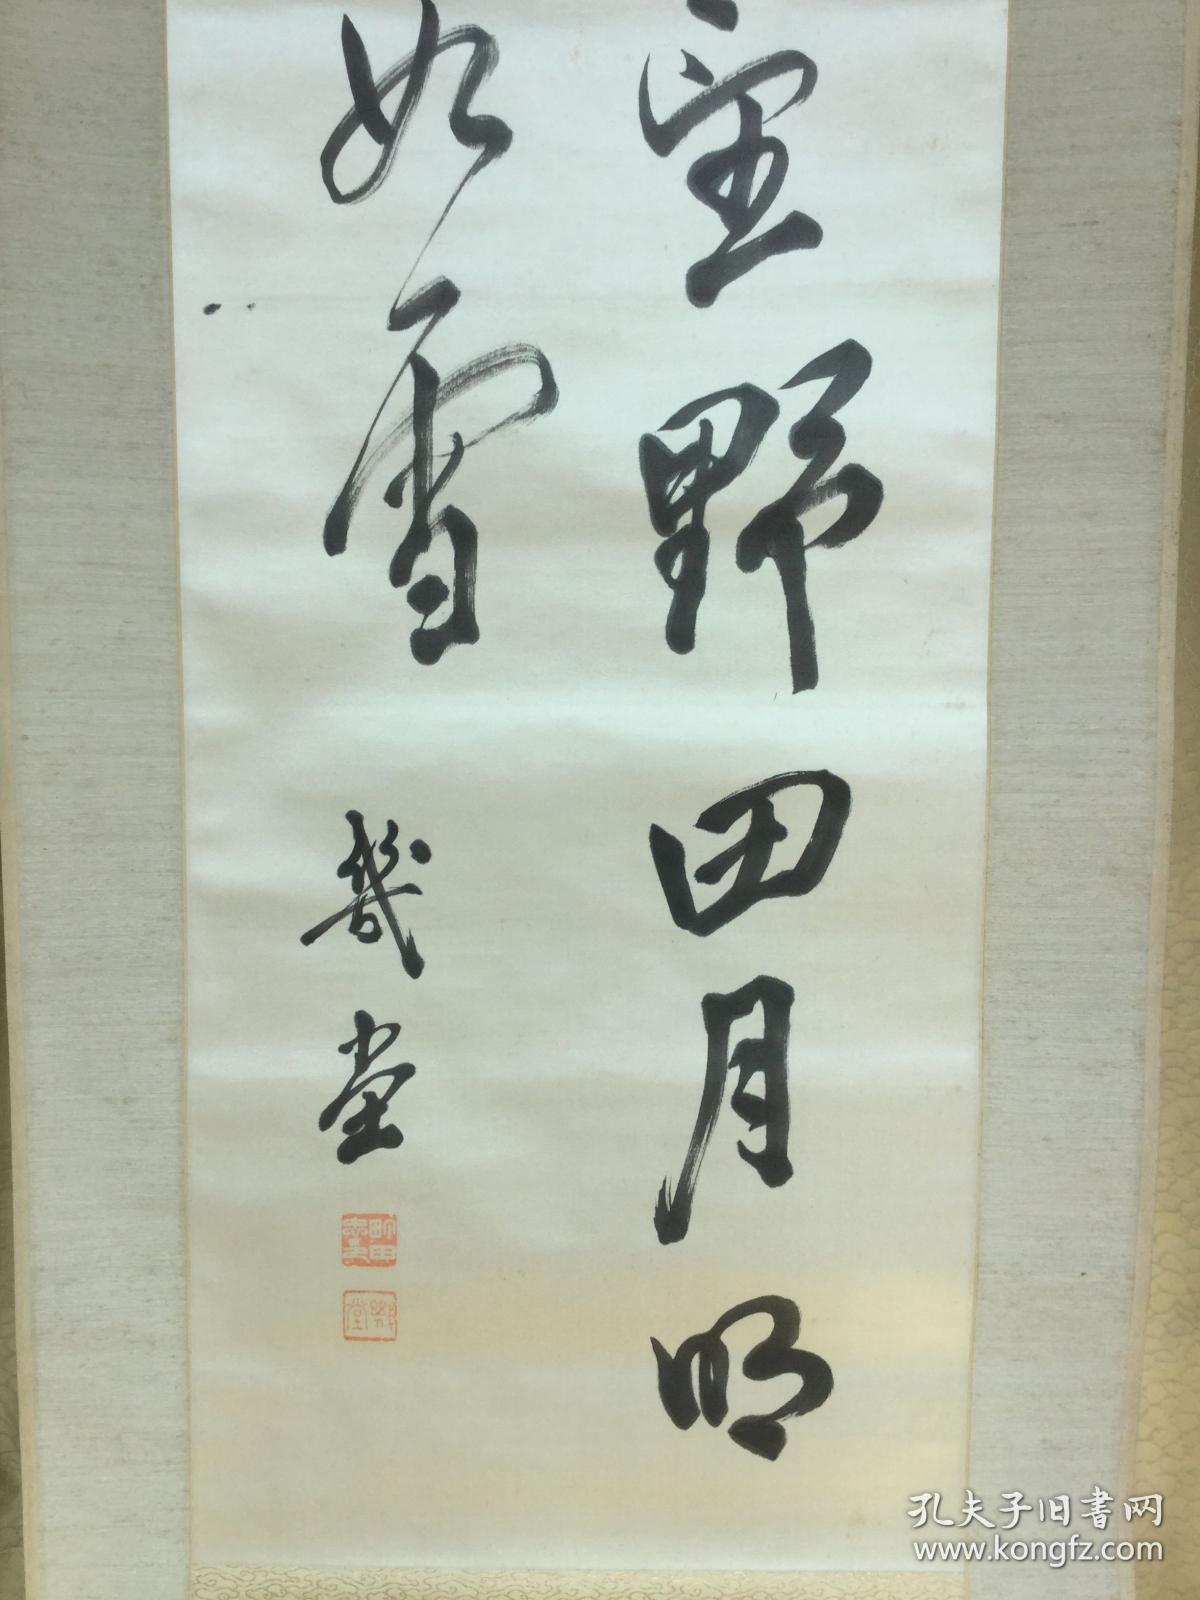 望野田月明
如雪
堂
孔夫子旧书网
www.kongfz.com